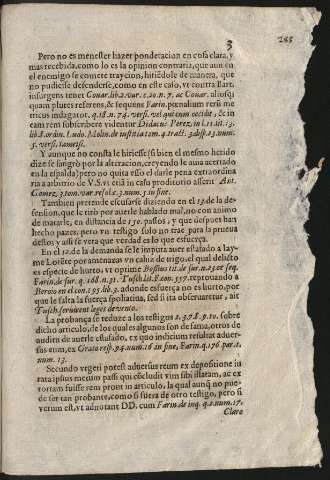 3
285
Pero no es menester hazer ponderacion en cosa clara, y
mas recebida, como lo es la opinion contraria, que aun en
el enemigo se comete traycion, hiriẽdole de manera, que
no pudiesse defenderse, como en este caso, vt contra Bart.
insurgens tenet Couar. lib. 2. var. c. 20. n. 7. ac Couar. aliosq;
quam plures referens, & sequens Farin. pœnalium rerũ me
ricus indagator. q. 18. n. 74. versi. vel qui eum occidit, & in
eam rem subscribere videntur Didacus Perez, in l. 11. tit. 13.
lib. 8. ordin. Ludo. Molin. de iustitia tom. 4. tract. 3. disp. 23. num.
5. versi. tametsi.
Y aunque no consta le hiriesse (si bien el mesmo herido
dize se sangrò por la alteracion, creyendo le auia acertado
en la espalda) pero no quita esso el darle pena extraordina
ria a arbitrio de V. S. vt etiã in casu proditorio asserit Ant.
Gomez, 3. tom. var. resol. c. 3. num. 5. in fine.
Tambien pretende escusarse diziendo en el 13. de la de-
fension, que le tirò por auerle hablado mal, no con animo
de matarle, en distancia de 150. passos; y que despues han
hecho pazes, pero vn testigo solo no trae para la prueua
destos y assi se vera que verdad es lo que esfuerça.
En el 12. de la demanda se le imputa auer estafado a Iay-
me Lorête por amenazas vn cahiz de trigo, el qual delicto
es especie de hurto, vt optime Bossius tit. de fur. n. 23. et seq.
Farin. de fur. q. 168. n. 31. Tusch. lit. F. con. 539. reprouando a
Beroio en el con. 195. lib. 3. adonde esfuerça no es hurto, por
que le falta la fuerça spoliatiua, sed si ita obseruaretur, ait
Tusch. seruirent leges de vento.
La probança se reduze a los testigos 2. 3. 7. 8. 9. 10. sobre
dicho articulo, de los quales algunos son de fama, otros de
audito de auerle estafado, ex quo indicium resultat aduer-
sus eum, ex Grato resp. 94. num. 16. in fine, Farin. q. 176. par. 2.
num. 13.
Secundo vrgeri potest aduersus reum ex depositione iu
rata ipsius metum passi qui excludit vim sibi illatam, ac ex-
tortam fuisse rem pront in articulo, la qual aunq̃ no pue-
de ser tan probante, como si fuera de otro testigo, pero si
verum est, vt adnotant DD. cum Farin. de inq. q. 2. num. 17.
Claro